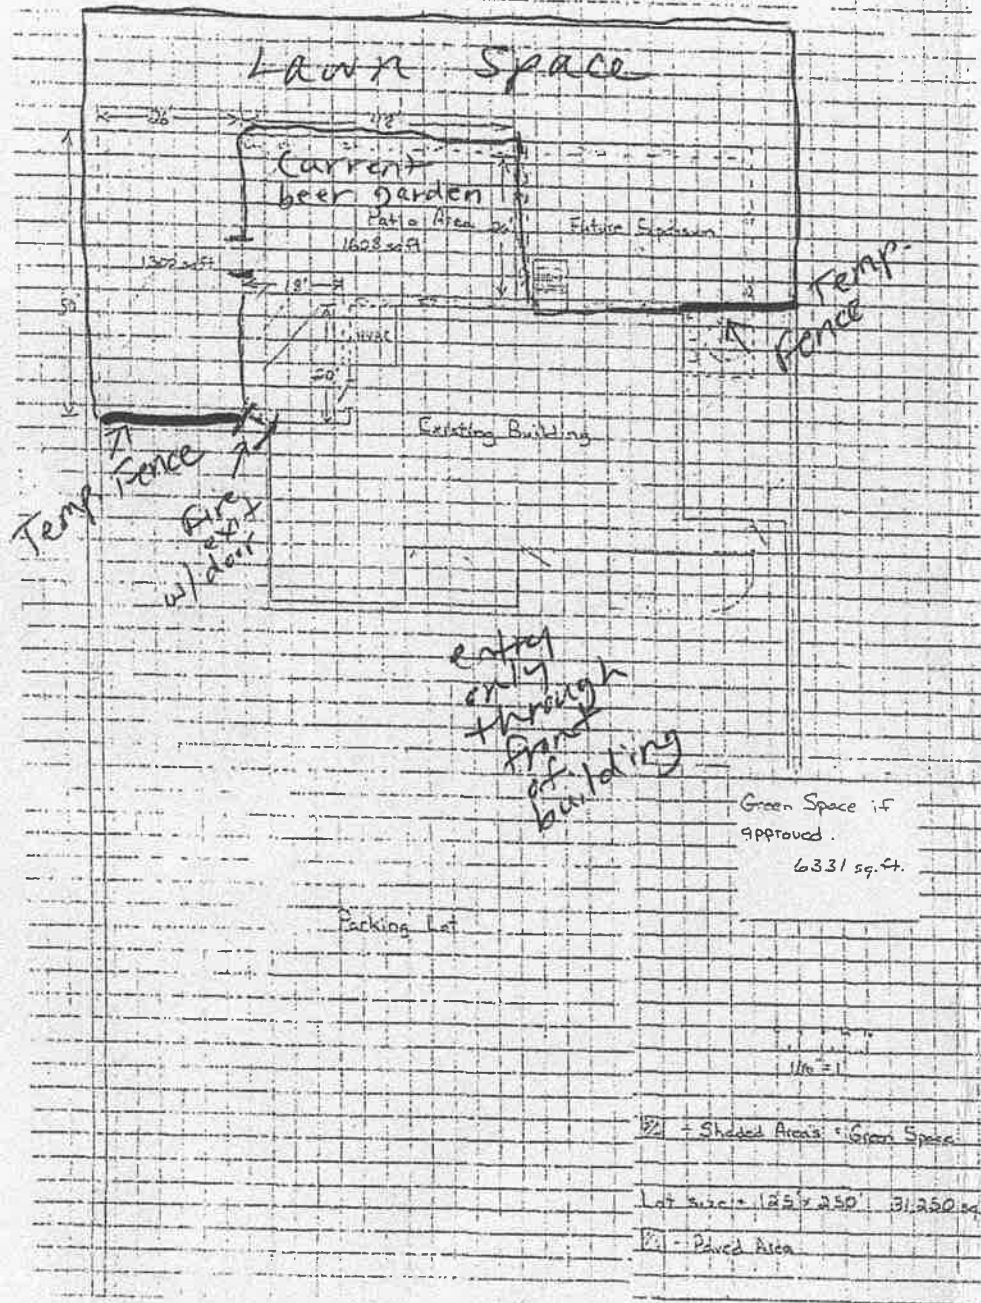 Lawn Space
26'
48'
Current
beer garden
Patio Area
26'
1608 sq ft
Future Expansion
1300 sq ft
18'
50'
HVAC
20'
Temp
Fence
Existing Building
Temp Fence
Fire
exit
w/ door
entry
only
through
front
of
building
Green Space if
approved.
6331 sq. ft.
Parking Lot
1/16" = 1'
- Shaded Areas = Green Space
Lot size = 125' x 250' 31,250 sq
- Paved Area